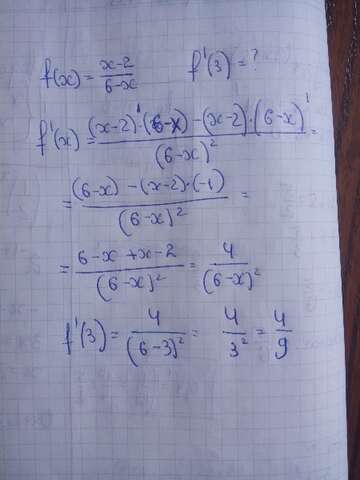 f(x) = \frac{x-2}{6-x} f'(3) = ?
f'(x) = \frac{(x-2)'·(6-x) - (x-2)·(6-x)'}{(6-x)^2} =
= \frac{(6-x) - (x-2)·(-1)}{(6-x)^2} =
= \frac{6-x+x-2}{(6-x)^2} = \frac{4}{(6-x)^2}
f'(3) = \frac{4}{(6-3)^2} = \frac{4}{3^2} = \frac{4}{9}